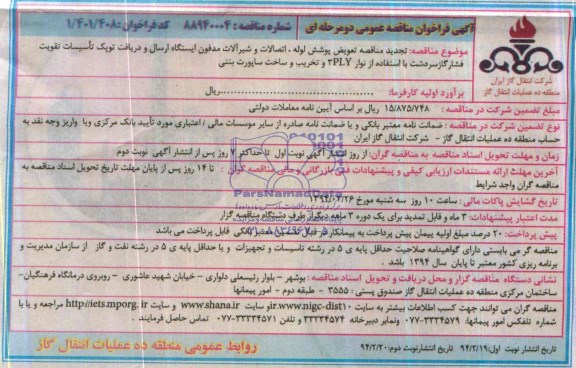 آگهی فراخوان مناقصه عمومی دو مرحله ای
شماره مناقصه: ۸۸۹۴۰۰۰۴
کد فراخوان: ۱/۴۰۱/۴۰۸
شرکت انتقال گاز ایران
منطقه ده عملیات انتقال گاز
موضوع مناقصه: تجدید مناقصه تعویض پوشش لوله ، اتصالات و شیرآلات مدفون ایستگاه ارسال و دریافت توپک تأسیسات تقویت
فشار گاز سردشت با استفاده از نوار ۳PLY و تخریب و ساخت ساپورت بتنی
برآورد اولیه کارفرما: ریال
مبلغ تضمین شرکت در مناقصه : ۱۵/۸۷۵/۷۴۸ ریال بر اساس آیین نامه معاملات دولتی
نوع تضمین شرکت در مناقصه : ضمانت نامه معتبر بانکی و یا ضمانت نامه صادره از سایر موسسات مالی / اعتباری مورد تأیید بانک مرکزی ویا واریز وجه نقد به
حساب منطقه ده عملیات انتقال گاز - شرکت انتقال گاز ایران
زمان و مهلت تحویل اسناد مناقصه به مناقصه گران: از روز انتشار آگهی نوبت اول تا حداکثر ۷ روز پس از انتشار آگهی نوبت دوم
آخرین مهلت ارائه مستندات ارزیابی کیفی و پیشنهادات فنی بازرگانی و مالی مناقصه گران : تا ۱۴ روز پس از پایان مهلت تاریخ تحویل اسناد مناقصه به
مناقصه گران واجد شرایط
تاریخ گشایش پاکات مالی : ساعت ۱۰ روز سه شنبه مورخ ۱۳۹۴/۰۴/۲۶
مدت اعتبار پیشنهادات: ۳ ماه و قابل تمدید برای یک دوره ۳ ماهه دیگر از طرف دستگاه مناقصه گزار
پیش پرداخت: ۲۰ درصد مبلغ اولیه پیمان پیش پرداخت به پیمانکار در قبال ضمانت معتبر بانکی قابل پرداخت می باشد
مناقصه گر می بایستی دارای گواهینامه صلاحیت حداقل پایه ۵ در رشته تاسیسات و تجهیزات و یا حداقل پایه ی ۵ در رشته نفت و گاز از سازمان مدیریت و
برنامه ریزی کشور معتبر تا پایان سال ۱۳۹۴ باشد .
نشانی دستگاه مناقصه گزار و محل دریافت و تحویل اسناد مناقصه : بوشهر - بلوار رئیسعلی دلواری - خیابان شهید عاشوری - روبروی درمانگاه فرهنگیان-
ساختمان مرکزی منطقه ده عملیات انتقال گاز صندوق پستی : ۳۵۵۵ - طبقه دوم - امور پیمانها
مناقصه گران می توانند جهت کسب اطلاعات بیشتر به سایت www.nigc-dist10.ir وز سایت www.shana.ir و سایت http://iets.mporg.ir مراجعه و یا با
شماره تلفکس امور پیمانها: ۳۳۳۳۴۵۷۹-۰۷۷ ونمابر دبیرخانه ۳۳۳۳۴۵۷۴ و تلفن ۳۳۳۳۴۵۷۱-۰۷۷ تماس حاصل فرمایند .
تاریخ انتشار نوبت اول: ۹۴/۲/۱۹ تاریخ انتشار نوبت دوم: ۹۴/۲/۲۰
روابط عمومی منطقه ده عملیات انتقال گاز
ParsNamadData